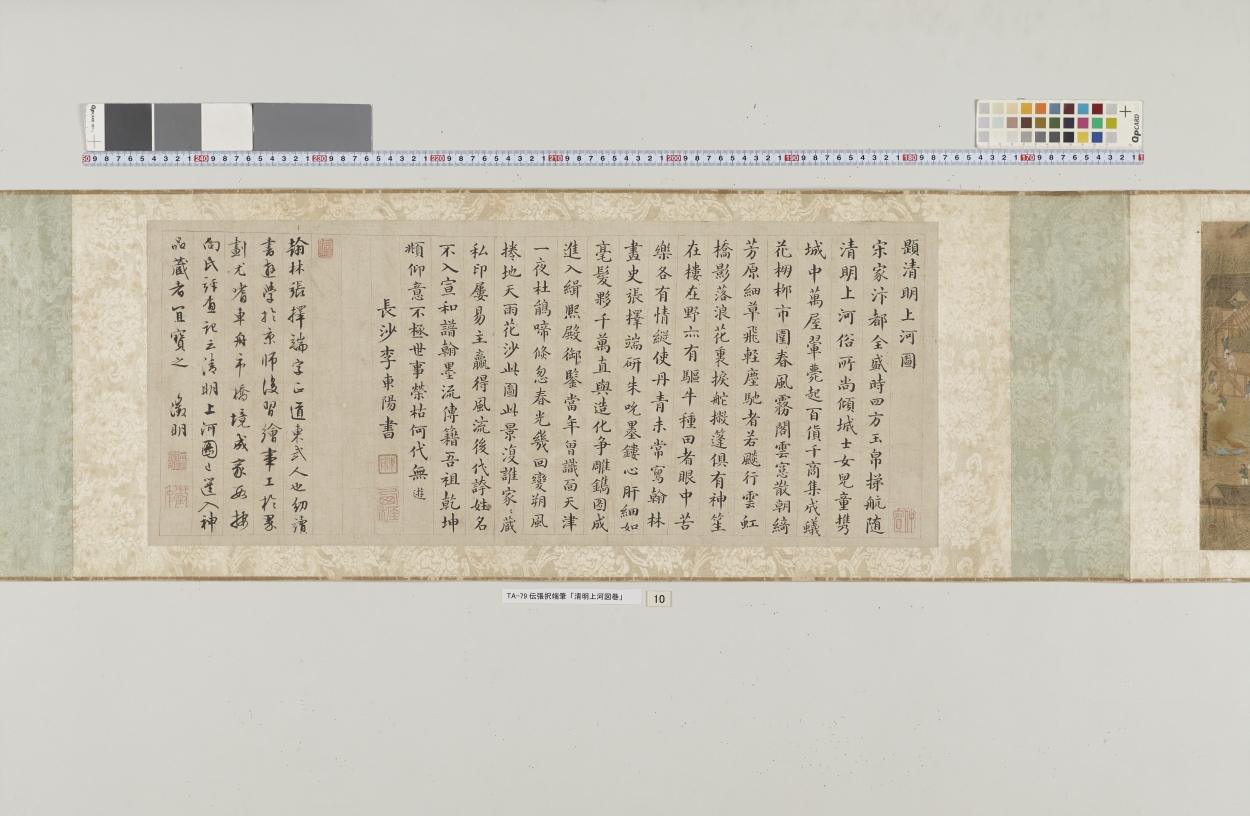 題清明上河圖
宋家汴都全盛時四方玉帛梯航随
清明上河俗所尚傾城士女兒童攜
城中萬屋翬甍起百貨千商集成蟻
花棚柳市圍春風霧閣雲窓散朝綺
芳原細草飛輕塵馳者若飈行雲虹
橋影落浪花裏捩舵撇篷俱有神笙
在樓在野亦有驅牛種田者眼中苦
樂各有情縱使丹青未常寫翰林
畫史張擇端研朱吮墨鏤心肝細如
毫髮夥千萬直與造化争雕鐫圖成
進入緝熙殿御鑒當年曾識面天津
一夜杜鵑啼倏忽春光幾回變朔風
捲地天雨花沙此圖此景復誰家〻藏
私印屢易主贏得風流後代誇姓名
不入宣和譜翰墨流傳籍吾祖乾坤
頫仰意不極世事榮枯何代無 遊
長沙李東陽書
翰林張擇端字正道東武人也幼讀
書遊學於京師後習繪事工於界
劃尤嗜車舟市橋境成家數按
向氏評畫記云清明上河圖選入神
品藏者宜寳之 徵明
TA-79 伝張択端筆「清明上河図巻」
10
OpCARD
240
230
220
210
200
190
180
170